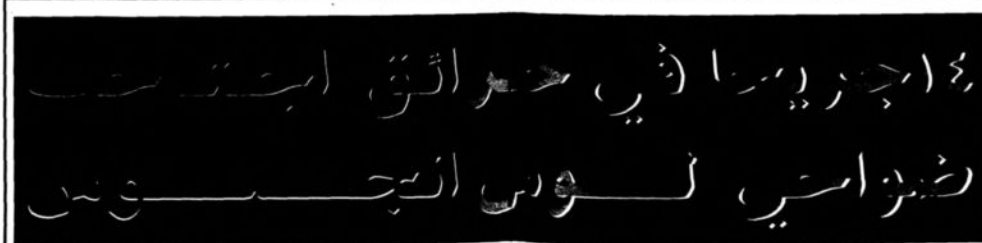 ١٤ جريحا في حرائق اجتاحت
ضواحي لوس انجلوس